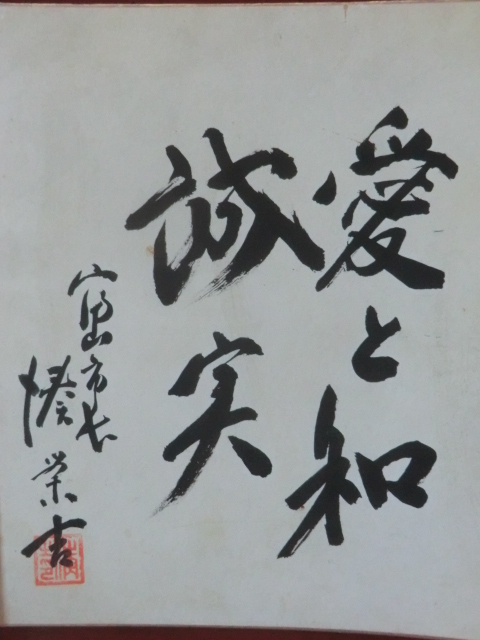 愛と和
誠実
富山市長
湊栄吉